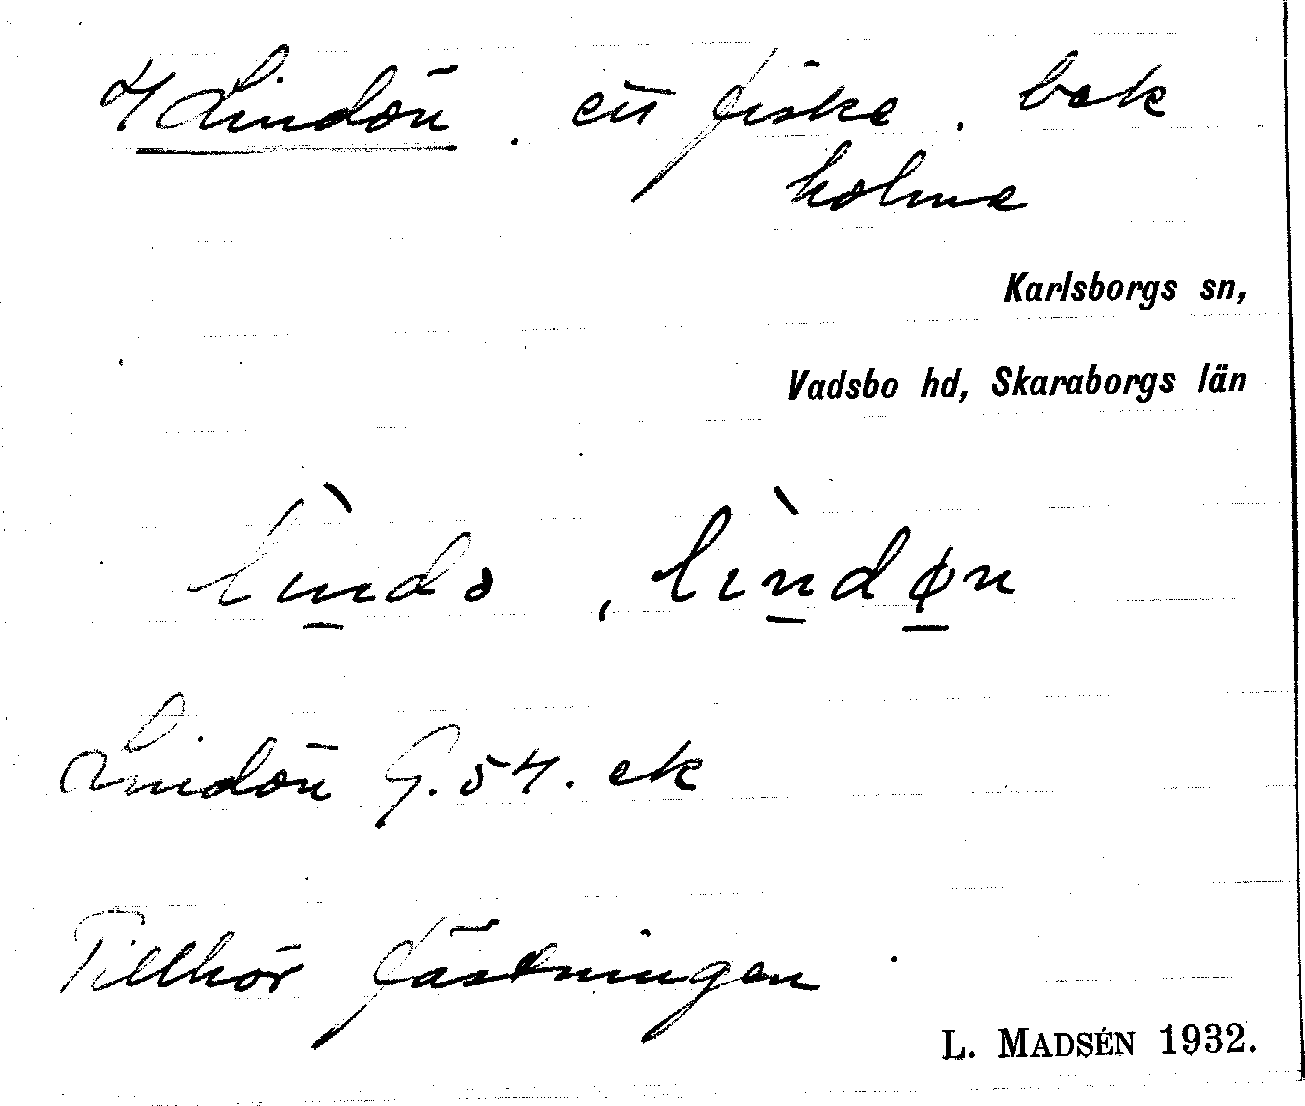 Lindön. ett fiske. bok
holme
Karlsborgs sn,
Vadsbo hd, Skaraborgs län
lìndə, lìndøn
Lindön G.54. ek
Tillhör fästningen.
L. MADSÉN 1932.